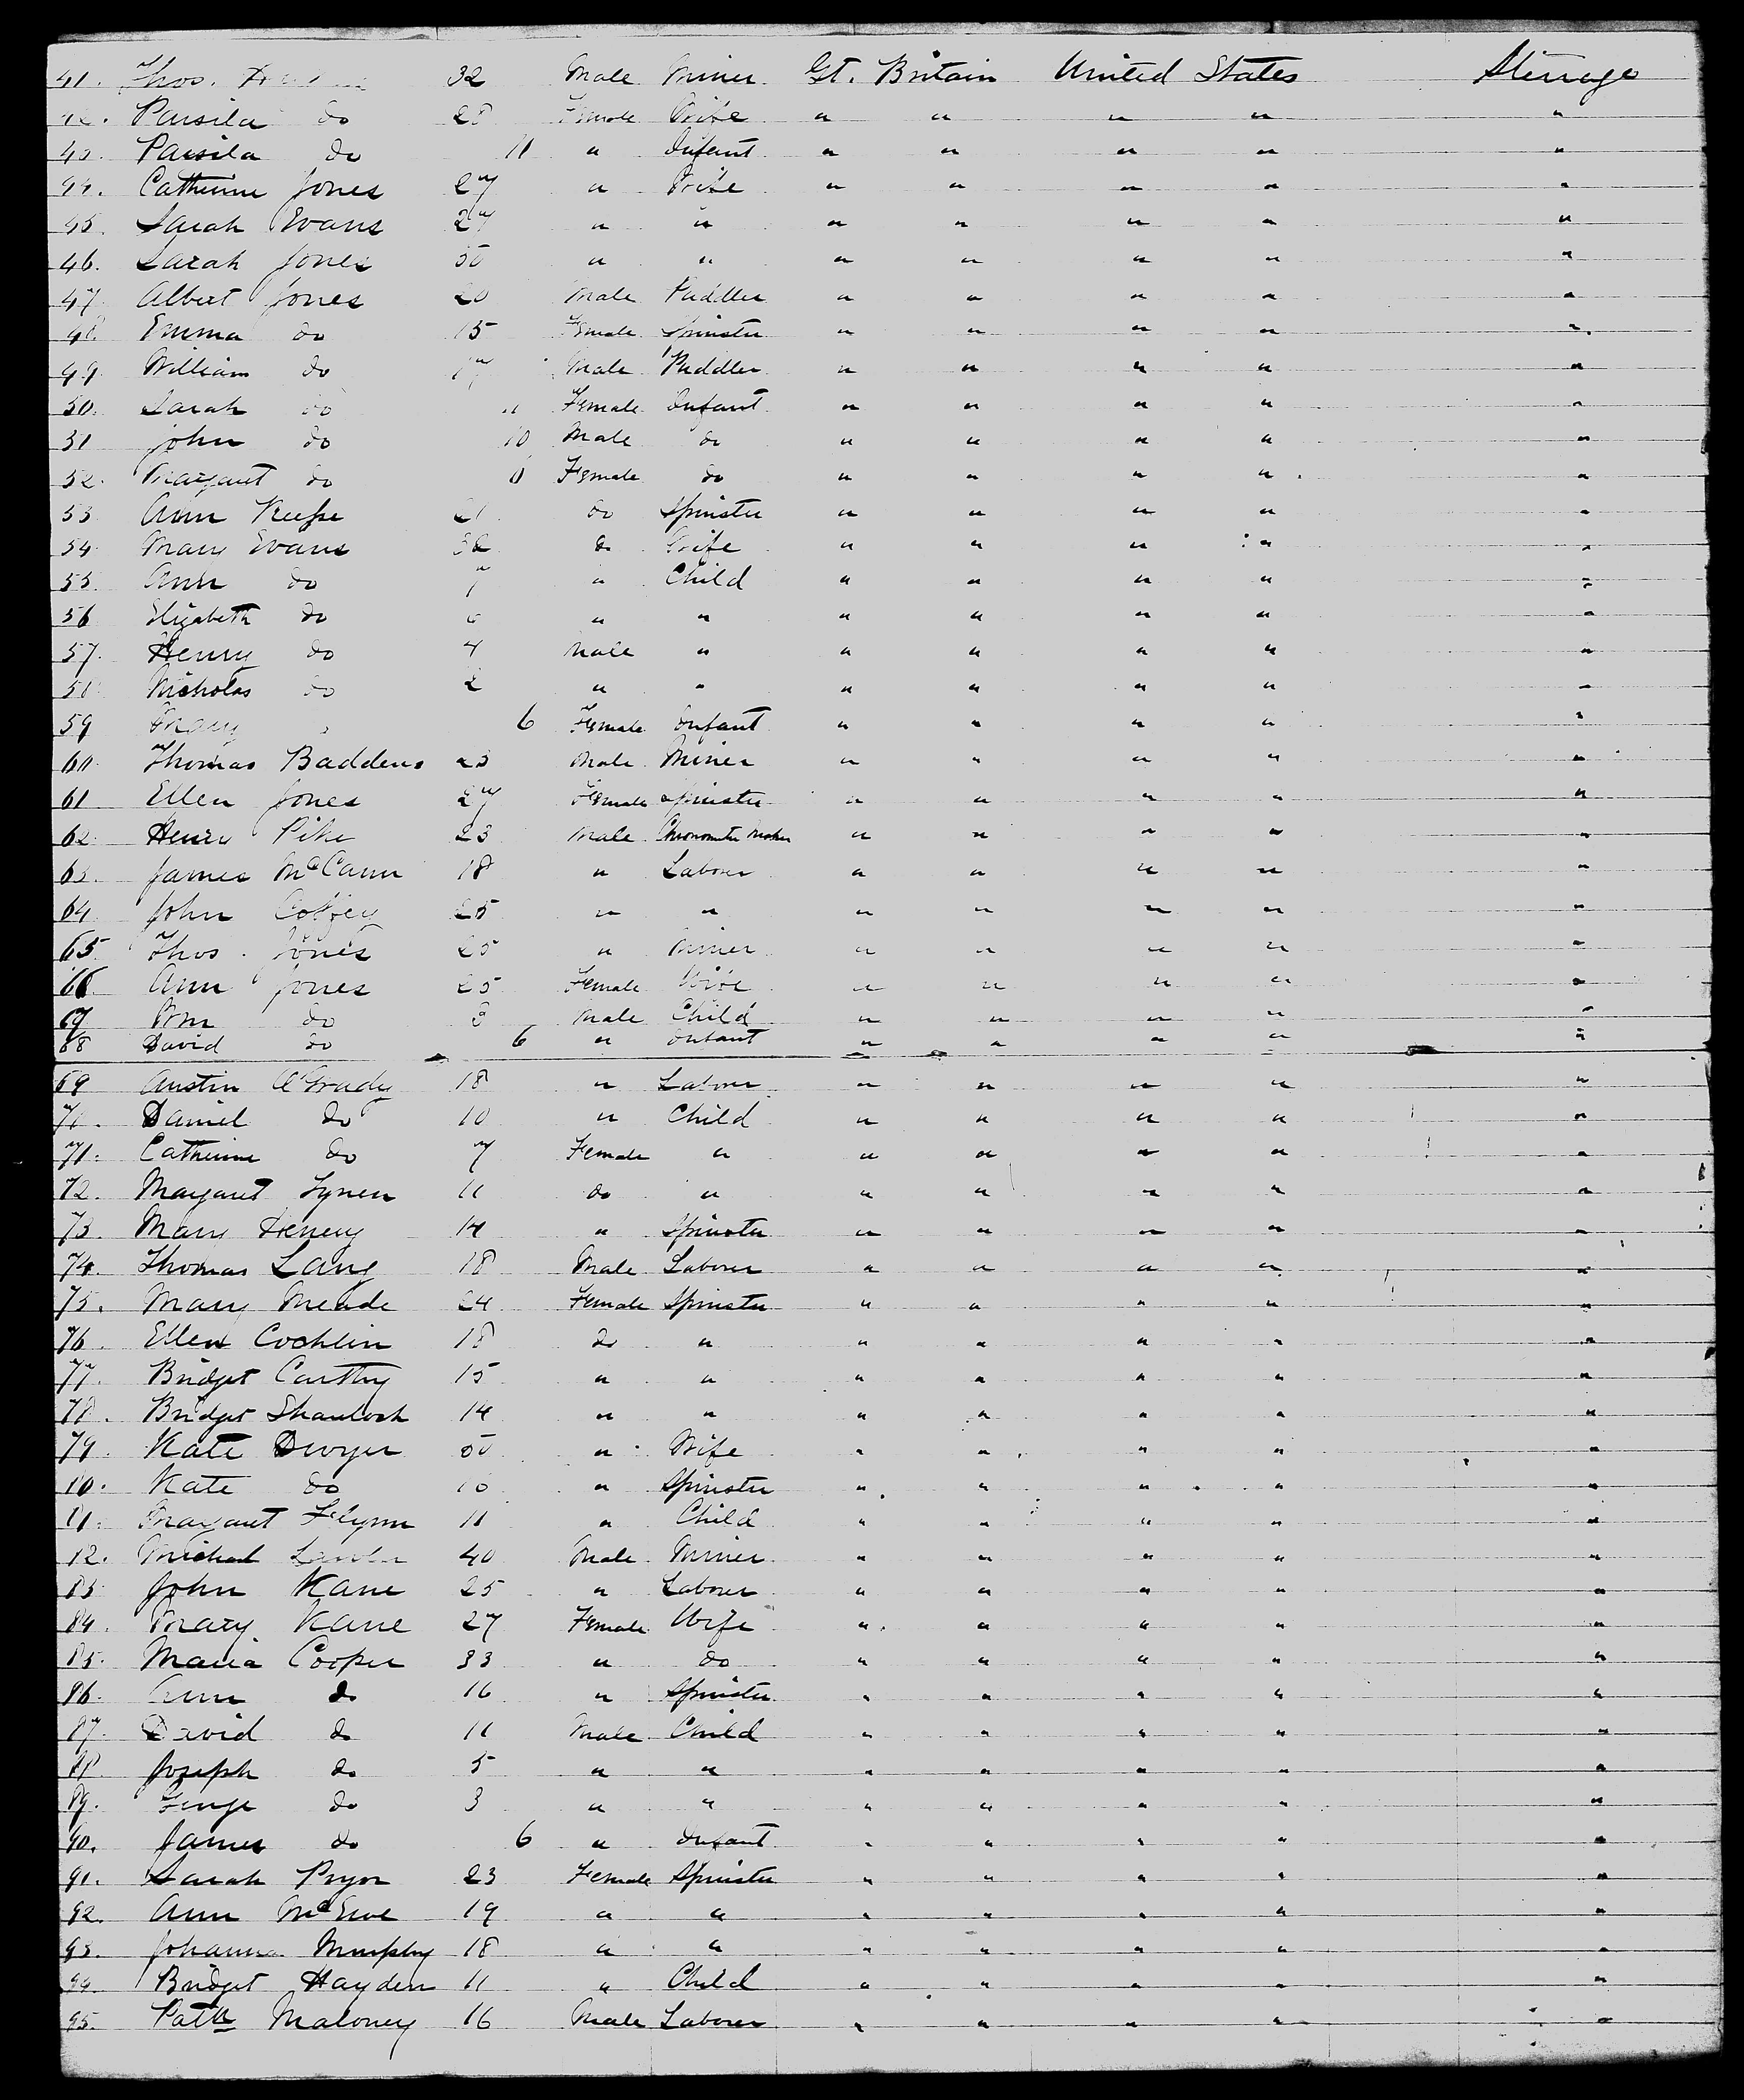 41. Thos. 32 Male Miner Gt. Britain United States Steerage
42. Parsila do 28 Female Wife " " " " "
43. Parsila do 11 " Infant " " " " "
44. Catherine Jones 27 " Wife " " " " "
45. Sarah Evans 27 " " " " " " "
46. Sarah Jones 50 " " " " " " "
47. Albert Jones 20 Male Puddler " " " " "
48. Emma do 15 Female Spinster " " " " "
49. William do 17 Male Puddler " " " " "
50. Sarah do Female Infant " " " " "
51 John do 10 Male do " " " " "
52. Margaret do Female do " " " " "
53 Ann 21 do Spinster " " " " "
54 Mary Evans 32 do Wife " " " " "
55. Ann do 7 " Child " " " " "
56 Elizabeth do 6 " " " " " " "
57. Henry do 4 Male " " " " " "
58 Nicholas do 2 " " " " " " "
59 Mary 6 Female Infant " " " " "
60 Thomas Baddens 23 Male Miner " " " " "
61 Ellen Jones 27 Female Spinster " " " " "
62 Henry Pike 23 Male Chronometer Maker " " " " "
63. James McCann 18 " Laborer " " " " "
64 John Coffey 25 " " " " " " "
65 Thos. Jones 25 " Miner " " " " "
66 Ann Jones 25 Female Wife " " " " "
67 Wm do 3 Male Child " " " " "
68 David do 6 " Infant " " " " "
69 Austin O'Grady 18 " Laborer " " " " "
70. Daniel do 10 " Child " " " " "
71. Catherine do 7 Female " " " " " "
72. Margaret Lynen 11 do " " " " " "
73. Mary Henery 14 " Spinster " " " " "
74. Thomas Lang 18 Male Laborer " " " " "
75. Mary Meade 24 Female Spinster " " " " "
76. Ellen Cochlin 18 do " " " " " "
77. Bridget Carthy 15 " " " " " " "
78. Bridget Shaulock 14 " " " " " " "
79. Kate Dwyer 50 " Wife " " " " "
80. Kate do 16 " Spinster " " " " "
81. Margaret Flynn 11 " Child " " " " "
82. Michael 40 Male Miner " " " " "
83 John Kane 25 " Laborer " " " " "
84. Mary Kane 27 Female Wife " " " " "
85. Maria Cooper 33 " do " " " " "
86. Ann do 16 " Spinster " " " " "
87. David do 11 Male Child " " " " "
88 Joseph do 5 " " " " " " "
89. George do 3 " " " " " " "
90. James do 6 " Infant " " " " "
91. Sarah Pryor 23 Female Spinster " " " " "
92. Ann McEwe 19 " " " " " " "
93. Johanna Murphy 18 " " " " " " "
94. Bridget Hayden 11 " Child " " " " "
95. Patk Maloney 16 Male Laborer " " " " "